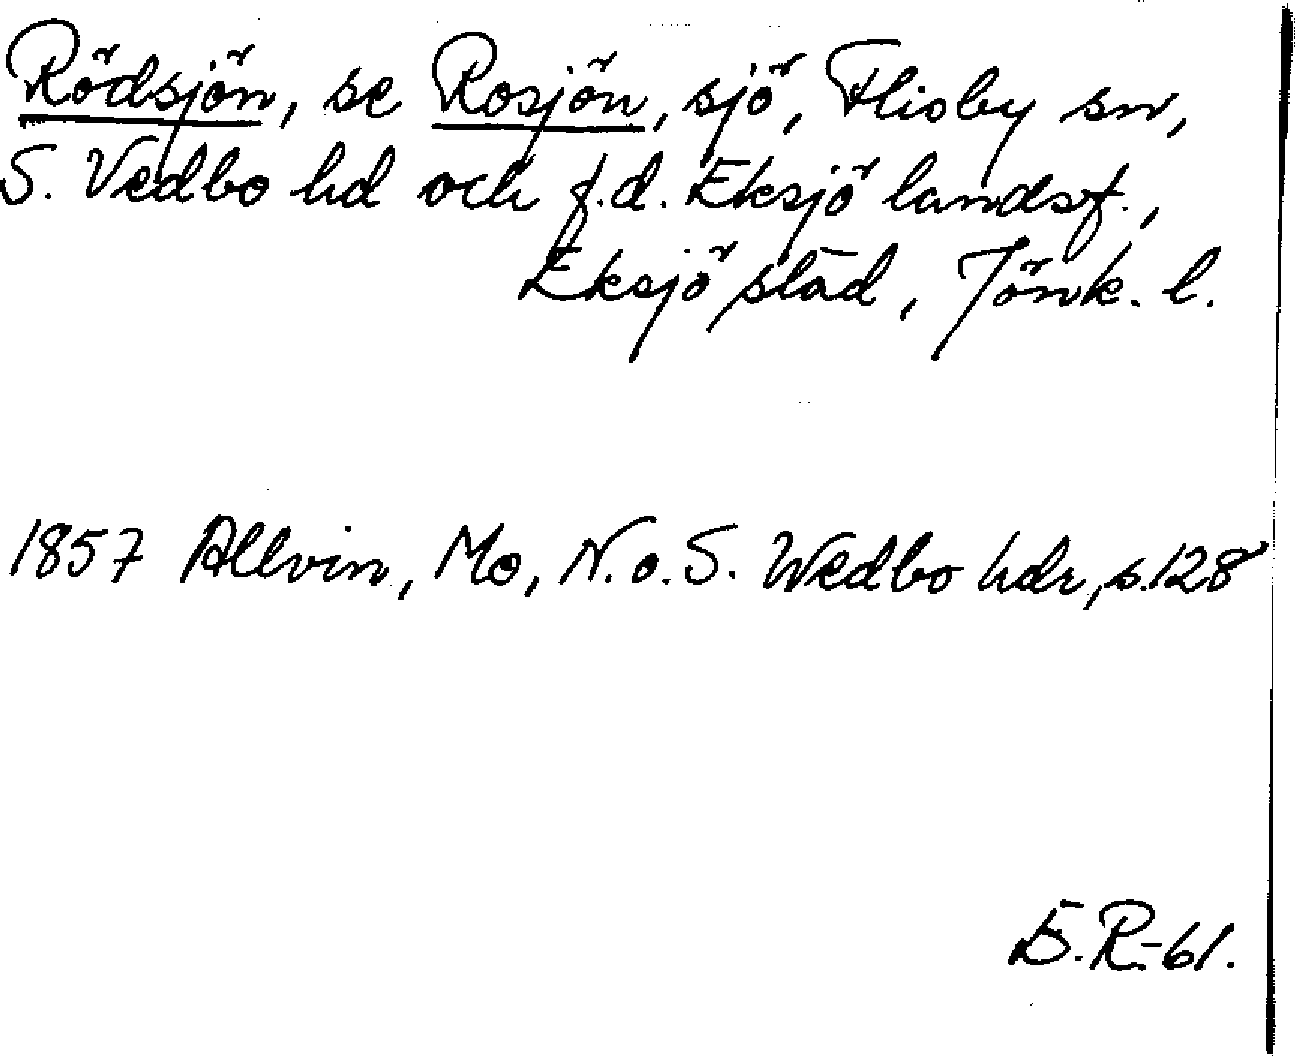 Rödsjön, se Rosjön, sjö, Flisby sn,
S. Vedbo hd och f.d. Eksjö landsf.,
Eksjö stad, Jönk. l.
1857 Allvin, Mo, N. o. S. Wedbo hdr, s.128
B.R.-61.